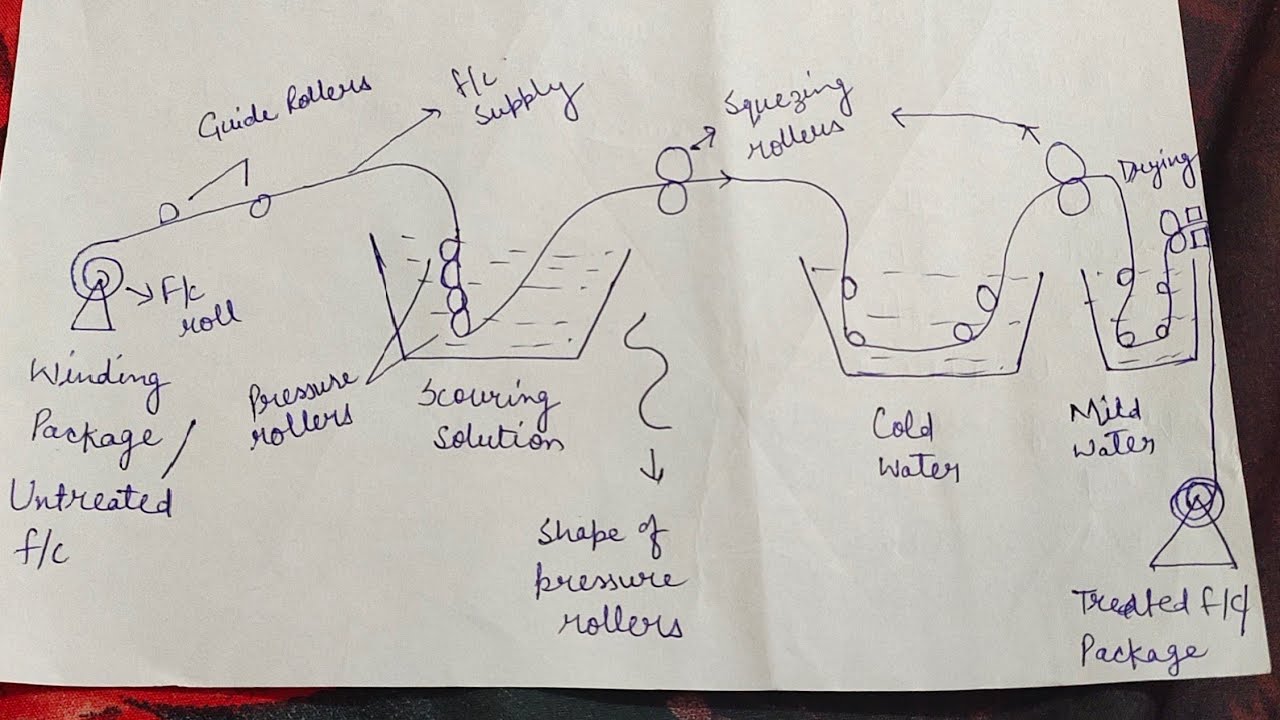 Guide Rollers
f/c
supply
Squezing
rollers
Drying
f/c
roll
Winding
Package/
Untreated
f/c
Pressure
rollers
Scouring
Solution
Shape of
pressure
rollers
Cold
water
Mild
water
Treated f/c/
Package